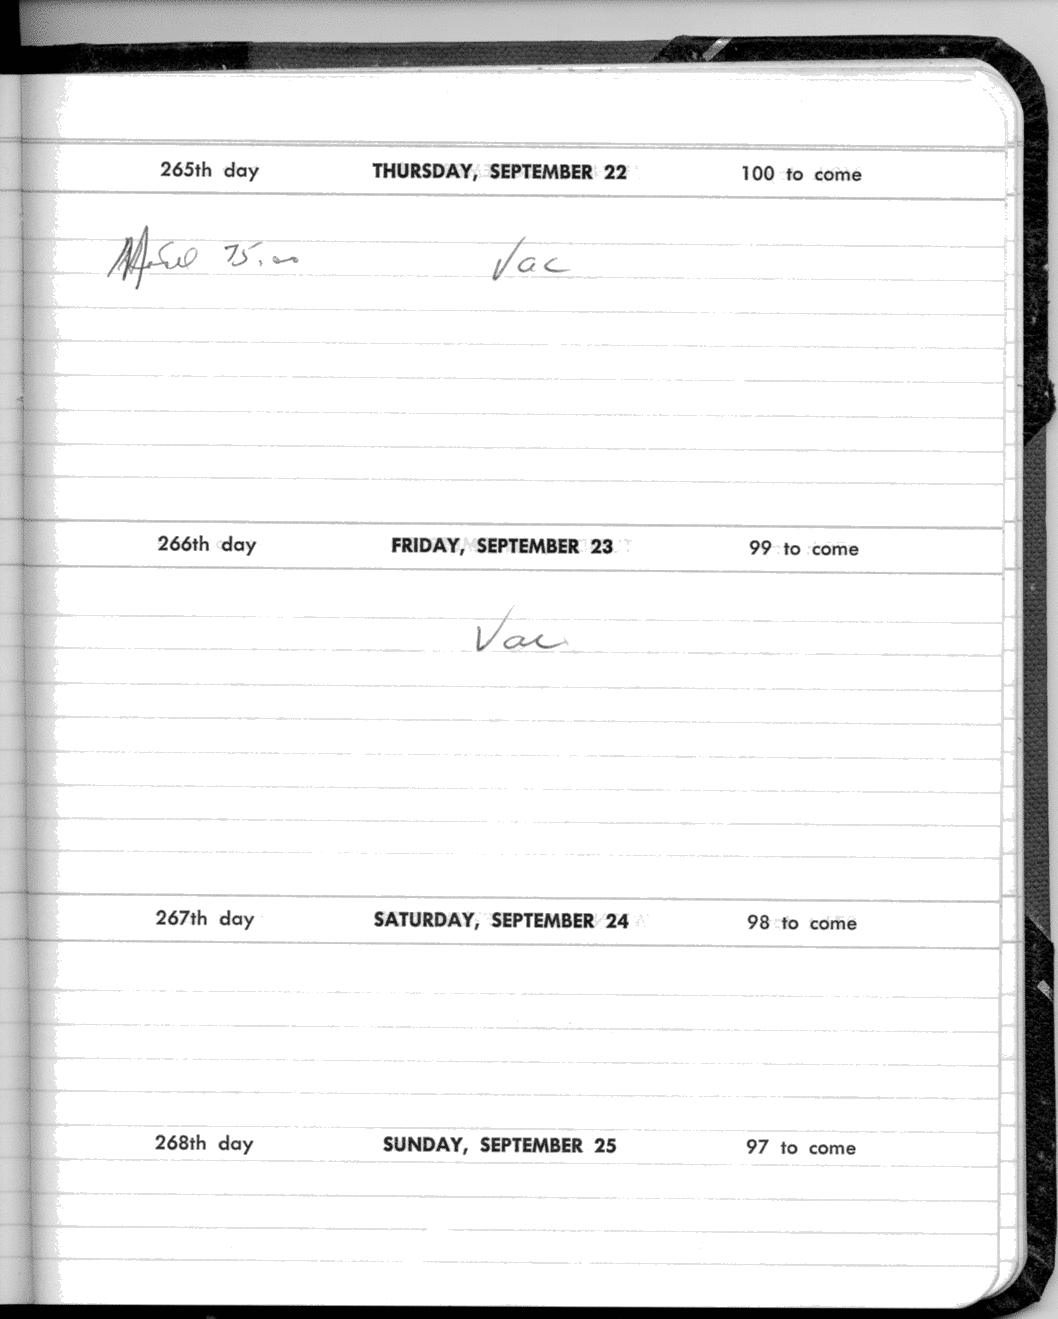 265th day THURSDAY, SEPTEMBER 22 100 to come
75.00 Vac
266th day FRIDAY, SEPTEMBER 23 99 to come
Vac
267th day SATURDAY, SEPTEMBER 24 98 to come
268th day SUNDAY, SEPTEMBER 25 97 to come